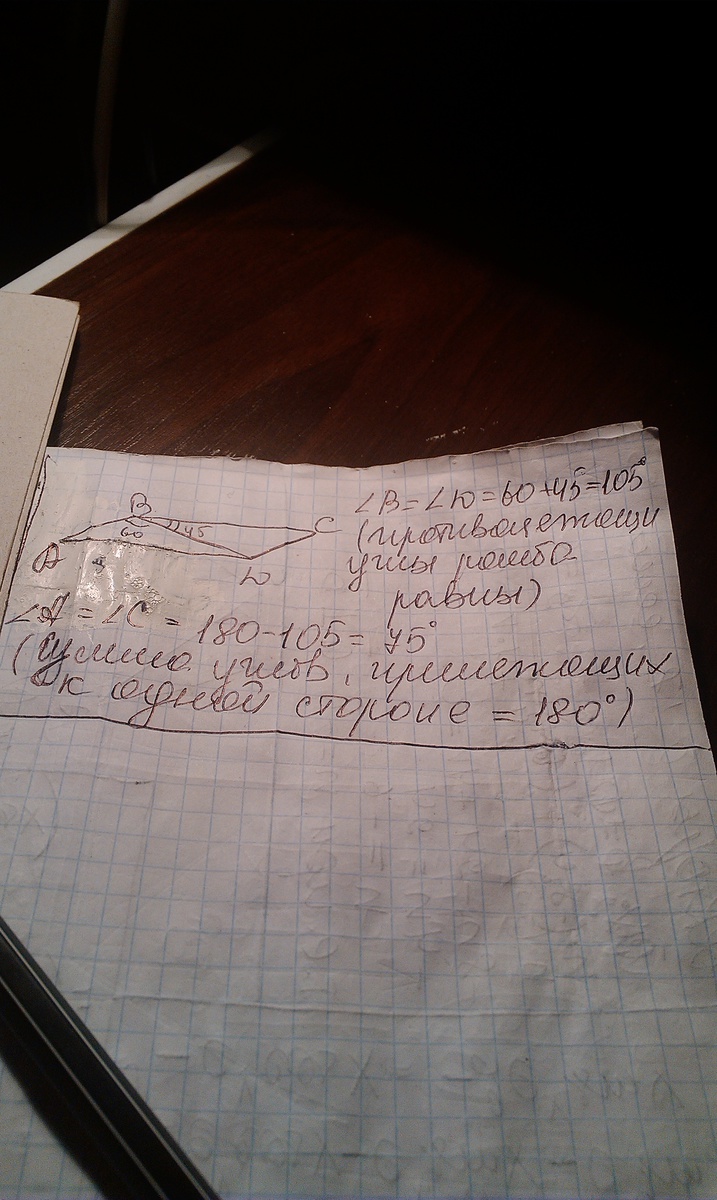 B
60
45
C
A
D
∠B = ∠D = 60+45=105°
(противолежащи
углы ромба
равны)
∠A = ∠C = 180-105= 75°
(сумма углов, прилежащих
к одной стороне = 180°)